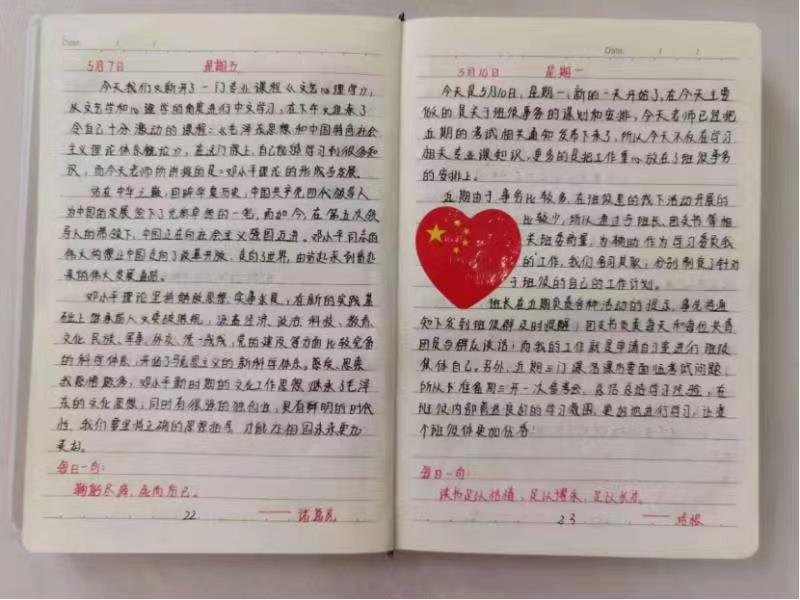 Date: / /
5月7日 星期五
今天我们又新开了一门专业课程《文艺心理学》,
从文艺学和心理学的角度进行中文学习,在下午又迎来了
令自己十分激动的课程:《毛泽东思想和中国特色社会
主义理论体系概论》,在这门课上,自己能够学习到很多知
识,而今天老师所讲授的是:邓小平理论的形成与发展.
站在中华之巅,回眸华夏历史,中国共产党四代领导人
为中国的发展绘下了光彩卓然的一笔,而如今,在第五次领
导人的带领下,中国正在向社会主义强国迈进.邓小平同志的
伟大构想让中国走向了改革开放,走向了世界,由站起来到着起
来的伟大发展直路.
邓小平理论坚持解放思想、实事求是,在新的实践基
础上继承前人又突破陈规,涵盖经济、政治、科技、教育、
文化、民族、军事、外交、统一战线、党的建设等方面比较完备
的科学体系,开拓了马克思主义的新科学体系.
我感慨颇多,邓小平新时期的文化工作思想继承了毛泽
东的文化思想,同时有很强的独创性,具有鲜明的时代
性.我们要坚持正确的思想拓展,才能在祖国未来更加
美好.
每日一句:
鞠躬尽瘁,死而后已。
22 —— 诸葛亮
Date / /
5月10日 星期一
今天是5月10日,星期一,新的一天开始了,在今天主要
做的是关于班级事务的谋划和安排,今天老师已经把
近期的考试相关通知发布下来了,所以今天不仅在学习
相关专业课知识,更多的是把工作重心放在了班级事务
的安排上。
近期由于事务比较多,在班级里的线下活动开展的
比较少,所以通过与班长、团支书等相
关班委商量,为辅助作为学习委员我
的工作,我们各司其职,分别制定了针对
于班级的自己的工作计划。
班长在近期负责各种活动的提示,事先将通
知下发到班级群及时提醒;团支书负责每天和每位发言
团员与群众谈话;而我的工作就是申请自习室进行班级
集体自习。另外,近期三门课活课需要面临考试问题,
所以下准备周三开一次备考会,总结总结学习经验,在
班级内部营造良好的学习氛围,更好地进行学习,让整
个班级体更加优秀!
每日一句:
读书足以怡情,足以博采,足以长才.
23 —— 培根